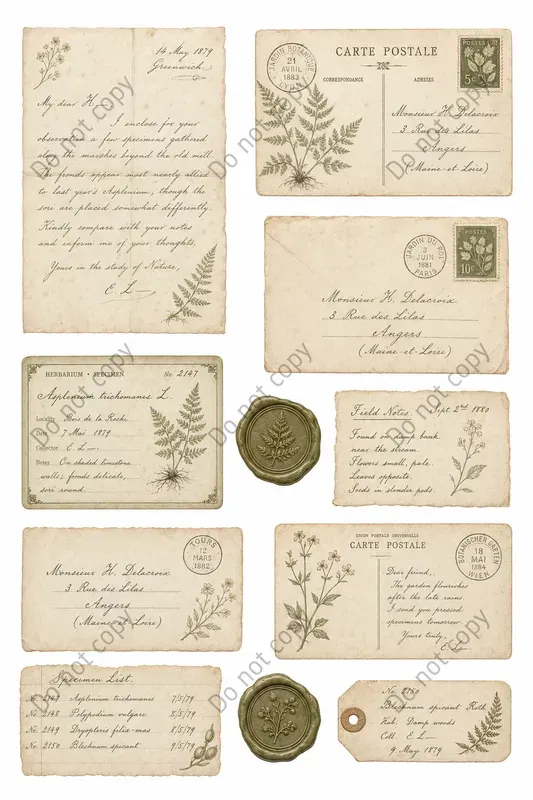 14 May 1879
Greenwich
My dear H.
I enclose for your
observation a few specimens gathered
along the marshes beyond the old mill.
The fronds appear most nearly allied
to last year's Asplenium, though the
sori are placed somewhat differently.
Kindly compare with your notes
and inform me of your thoughts.
Yours in the study of Nature,
E. L—
CARTE POSTALE
CORRESPONDANCE
ADRESSE
JARDIN BOTANIQUE
21
AVRIL
1883
LYON
POSTES
5c
Monsieur H. Delacroix
3 Rue des Lilas
Angers
(Maine-et-Loire)
JARDIN DU ROI
3
JUIN
1881
PARIS
POSTES
10c
Monsieur H. Delacroix
3 Rue des Lilas
Angers
(Maine-et-Loire)
HERBARIUM • SPECIMEN
No. 2147
Asplenium trichomanes L.
Locality Bois de la Roche
7 Mai 1879
Collector E. L—
Notes On shaded limestone
walls; fronds delicate,
sori round.
Field Notes. Sept. 2nd 1880
Found on damp bank
near the stream.
Flowers small, pale.
Leaves opposite.
Seeds in slender pods.
TOURS
12
MARS
1882
Monsieur H. Delacroix
3 Rue des Lilas
Angers
(Maine-et-Loire)
UNION POSTALE UNIVERSELLE
CARTE POSTALE
BOTANISCHER GARTEN
18
MAI
1884
WIEN
Dear friend,
The garden flourishes
after the late rains.
I send you pressed
specimens tomorrow.
Yours truly,
E. L—
Specimen List.
No. 2147 Asplenium trichomanes 7/5/79
No. 2148 Polypodium vulgare 8/5/79
No. 2149 Dryopteris filix-mas 8/5/79
No. 2150 Blechnum spicant 9/5/79
No. 2150
Blechnum spicant Roth
Hab. Damp woods
Coll. E. L—
9 May 1879
Do not copy
Do not copy
Do not copy
Do not copy
Do not copy
Do not copy
Do not copy
Do not copy